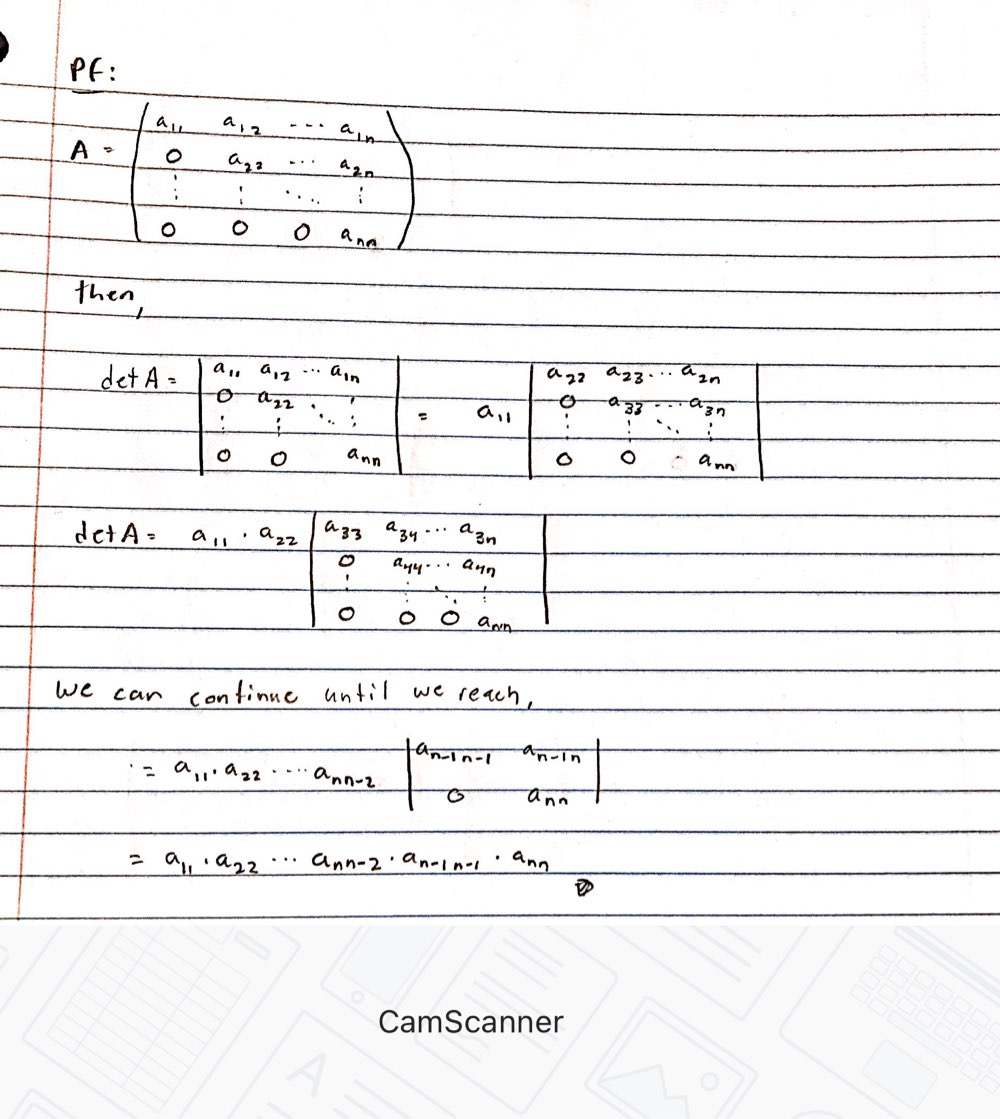 Pf:
a₁₁ a₁₂ ... a₁ₙ
A = 0 a₂₂ ... a₂ₙ
⋮ ⋮ ⋱ ⋮
0 0 0 aₙₙ
then,
det A = | a₁₁ a₁₂ ... a₁ₙ | = a₁₁ | a₂₂ a₂₃ ... a₂ₙ |
| 0 a₂₂ ⋱ ⋮ | | 0 a₃₃ ... a₃ₙ |
| ⋮ ⋮ ⋮ | | ⋮ ⋮ ⋱ ⋮ |
| 0 0 aₙₙ | | 0 0 aₙₙ |
det A = a₁₁ · a₂₂ | a₃₃ a₃₄ ... a₃ₙ |
| 0 a₄₄ ... a₄ₙ |
| ⋮ ⋮ ⋱ ⋮ |
| 0 0 0 aₙₙ |
we can continue until we reach,
= a₁₁ · a₂₂ ... aₙₙ₋₂ | aₙ₋₁ₙ₋₁ aₙ₋₁ₙ |
| 0 aₙₙ |
= a₁₁ · a₂₂ ... aₙₙ₋₂ · aₙ₋₁ₙ₋₁ · aₙₙ
CamScanner